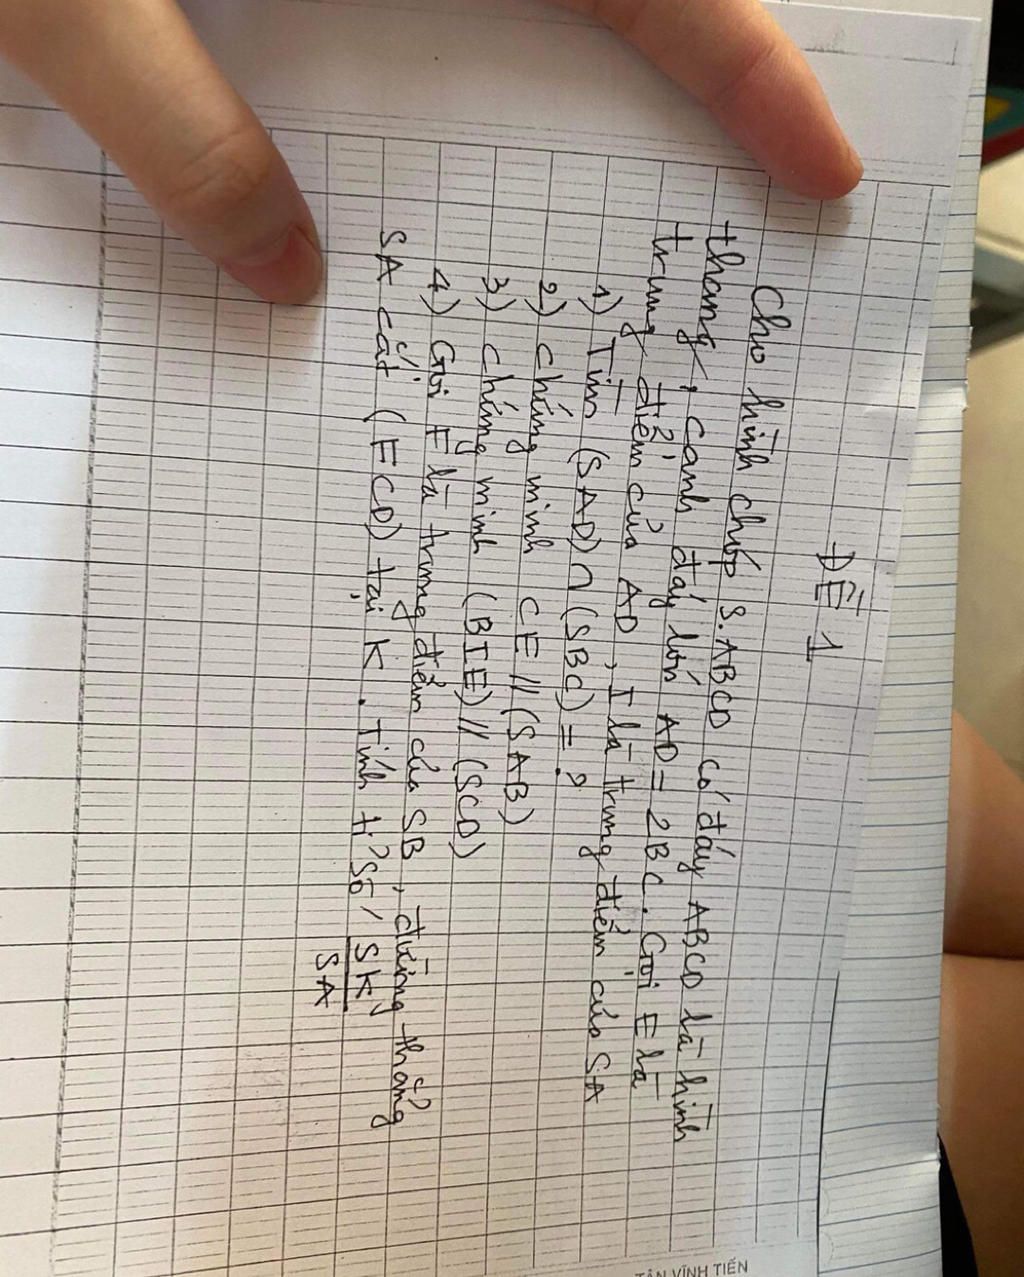 ĐỀ 1
Cho hình chóp S.ABCD có đáy ABCD là hình
thang, cạnh đáy lớn AD = 2BC. Gọi E là
trung điểm của AD, I là trung điểm của SA
1) Tìm (SAD) ∩ (SBC) = ?
2) chứng minh CE // (SAB)
3) chứng minh (BIE) // (SCD)
4) Gọi F là trung điểm của SB, đường thẳng
SA cắt (FCD) tại K. Tính tỉ số SK/SA
TÂN VĨNH TIẾN